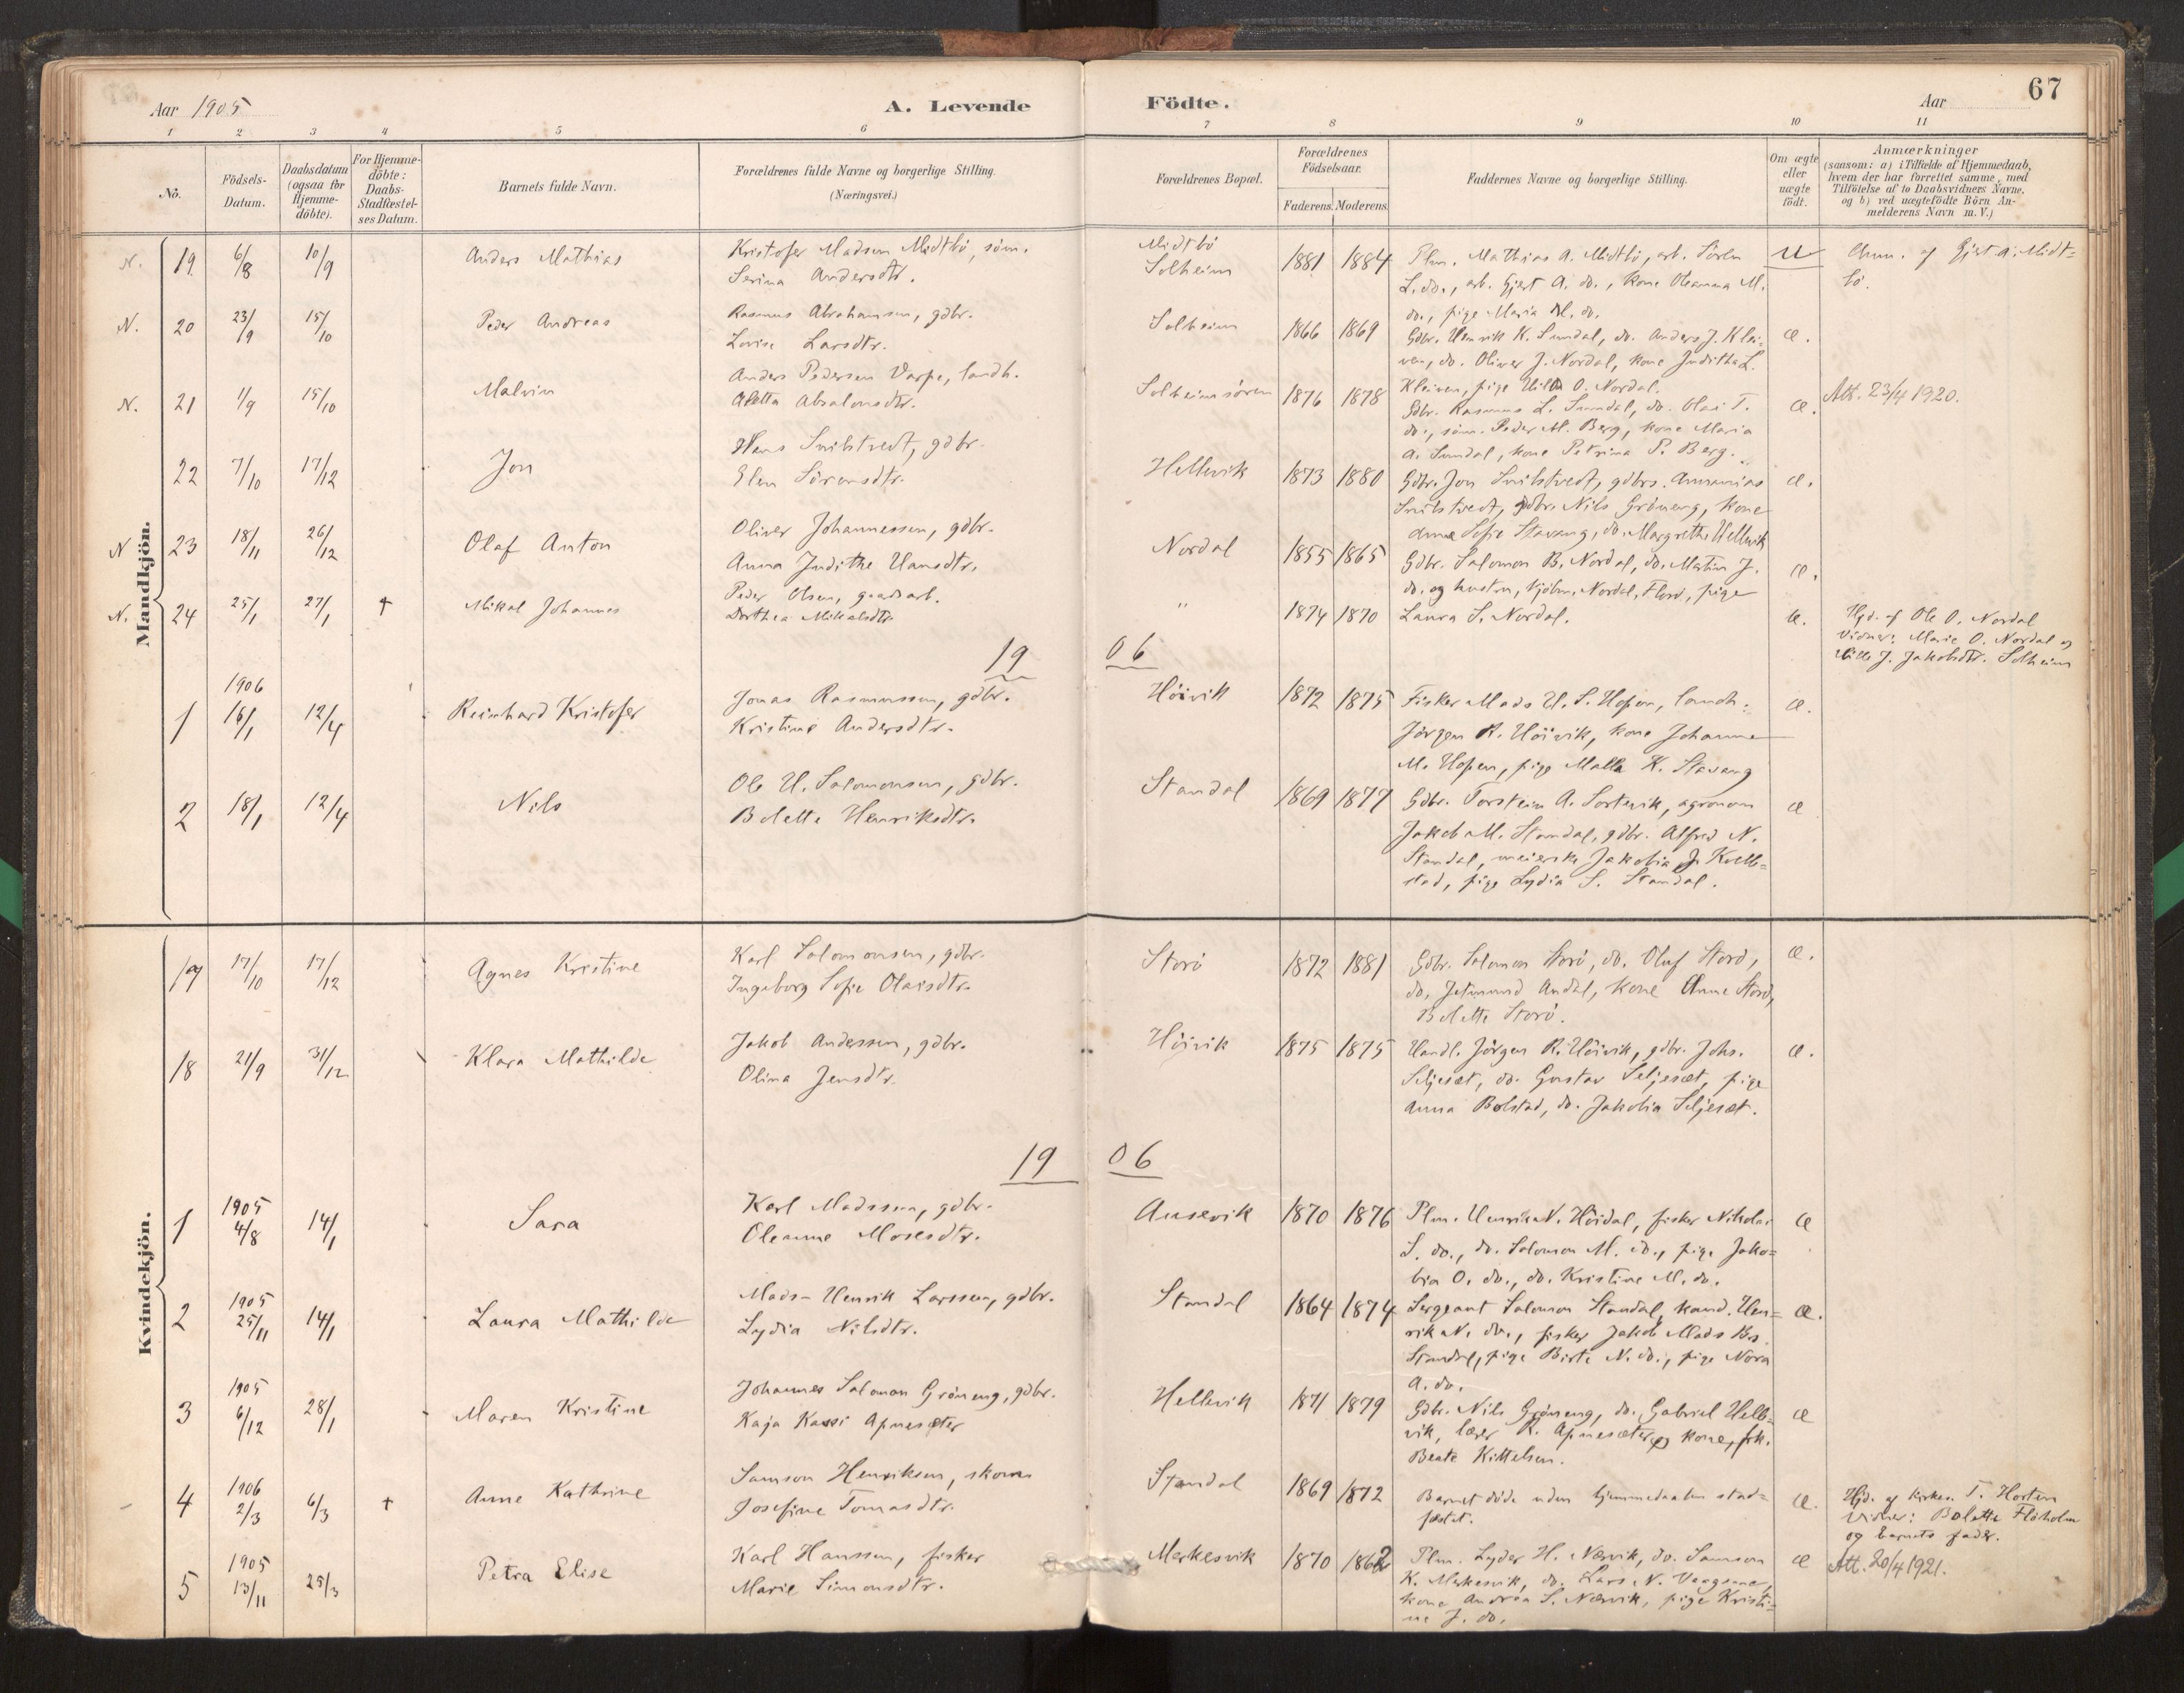 67
Aar 1905
A. Levende
Födte.
Aar
1 2 3 4 5 6 7 8 9 10 11
No.
Födsels-Datum.
Daabsdatum (ogsaa for Hjemme-döbte).
For Hjemme-döbte: Daabs-Stadfæstel-ses Datum.
Barnets fulde Navn.
Forældrenes fulde Navne og borgerlige Stilling.
(Næringsvei.)
Forældrenes Bopæl.
Forældrenes Födselsaar.
Faderens. Moderens.
Faddernes Navne og borgerlige Stilling.
Om ægte eller uægte födt.
Anmærkninger
(saasom: a) i Tilfælde af Hjemmedaab,
hvem der har forrettet samme, med
Tilföielse af to Daabsvidners Navne,
og b) ved uægtefödte Börn An-
melderens Navn m. V.)
Mandkjön.
N. 19 6/8 10/9 Anders Mathias
Kristofer Madsen Midtbö, söm.
Serina Andersdtr.
Midtbö
Solheim
1881 1884
Plm. Mathias A. Midtbö, arb. Sören
L. do., arb. Gjert A. do., kone Oleanna M.
do., pige Maria M. do.
u
Anm. af Gjert A. Midt=
bö.
N. 20 23/9 15/10 Peder Andreas
Rasmus Abrahamsen, gdbr.
Lovise Larsdtr.
Solheim
1866 1869
Gdbr. Henrik K. Sundal, do. Anders J. Klei-
ven, do. Oliver J. Nordal, kone Juditha L.
Kleiven, pige Hilda O. Nordal.
æ.
N. 21 1/9 15/10 Malvin
Anders Pedersen Varpe, landh.
Aletta Absalonsdtr.
Solheimsören
1876 1878
Gdbr. Rasmus L. Sundal, do. Olai T.
do., söm. Peder M. Berg, kone Maria
A. Sundal, kone Petrina P. Berg.
æ.
Att. 23/4 1920.
22 7/10 17/12 Jon
Hans Snilstvedt, gdbr.
Elen Sörensdtr.
Hellevik
1873 1880
Gdbr. Jon Snilstvedt, gdbrs. Ananias
Snilstvedt, gdbr. Nils Gröneng, kone
Anna Sofie Stavang, do. Margrethe Hellevik
æ.
N 23 18/11 26/12 Olaf Anton
Oliver Johannessen, gdbr.
Anna Judithe Hansdtr.
Nordal
1855 1865
Gdbr. Salomon B. Nordal, do. Martin J.
do. og hustru, kjöbm. Nordal, Florö, pige
Laura S. Nordal.
æ.
N. 24 25/1 27/1 † Mikal Johannes
Peder Olsen, gaardarb.
Dorthea Mikalsdtr.
"
1874 1870
æ.
Hjd. af Ole O. Nordal
Vidner: Marie O. Nordal og
Jakobsdtr. Solheim
1906
1906
1 16/1 12/4 Reinhard Kristofer
Jonas Rasmussen, gdbr.
Kristine Andersdtr.
Höivik
1872 1875
Fisker Mads H. S. Hopen, landh.
Jörgen R. Höivik, kone Johanne
M. Hopen, pige Malla K. Stavang
æ.
2 18/1 12/4 Nils
Ole H. Salomonsen, gdbr.
Bolette Henriksdtr.
Standal
1869 1877
Gdbr. Torstein A. Sortevik, agronom
Jakob M. Standal, gdbr. Alfred N.
Standal, meierske Jakobia J. Kvell=
stad, pige Lydia S. Standal.
æ
Kvindekjön.
17 17/10 17/12 Agnes Kristine
Karl Salomonsen, gdbr.
Ingeborg Sofie Olaisdtr.
Storö
1872 1881
Gdbr. Salomon Storö, do. Oluf Storö,
do. Jetmund Andal, kone Anne Storö,
Bolette Storö.
æ.
18 21/9 31/12 Klara Mathilde
Jakob Anderssen, gdbr.
Olina Jensdtr.
Höivik
1875 1875
Handl. Jörgen R. Höivik, gdbr. Johs.
Seljeset, do. Gustav Seljeset, pige
Anna Bolstad, do. Jakobia Seljeset.
æ.
1906
1 1905 4/8 14/1 Sara
Karl Madssen, gdbr.
Oleanne Mosesdtr.
Ausevik
1870 1876
Plm. Henrik N. Höidal, fisker Nikolai
S. do., do. Salomon M. do., pige Jako=
bia O. do., do. Kristine M. do.
æ
2 1905 25/11 14/1 Laura Mathilde
Mads Henrik Larssen, gdbr.
Lydia Nilsdtr.
Standal
1864 1874
Sergeant Salomon Standal, kand. Hen=
rik N. do., fisker Jakob Mads Bos.
Standal, pige Birte N. do., pige Nora
A. do.
æ.
3 1905 6/12 28/1 Maren Kristine
Johannes Salomon Gröneng, gdbr.
Kaja Kassi Apneseter
Hellevik
1871 1879
Gdbr. Nils Gröneng, do. Gabriel Helle=
vik, lærer R. Apneseter og kone, frk.
Beate Kittelsen.
æ
4 1906 2/3 6/3 † Anne Kathrine
Samson Henriksen, skom
Josefine Tomasdtr.
Standal
1869 1872
Barnet döde uden hjemmedaaben stad=
fæstet.
æ.
Hjd. af kirkes. T. Horten
Vidner: Bolette Flöholm
og barnets fader.
5 1905 13/11 25/3 Petra Elise
Karl Hanssen, fisker
Marie Simonsdtr.
Merkesvik
1870 1862
Plm. Lyder H. Nærvik, do. Samson
K. Merkesvik, do. Lars N.
kone Andrea S. Nærvik, pige Kristi=
ne J. do.
æ
Att. 20/4 1921.